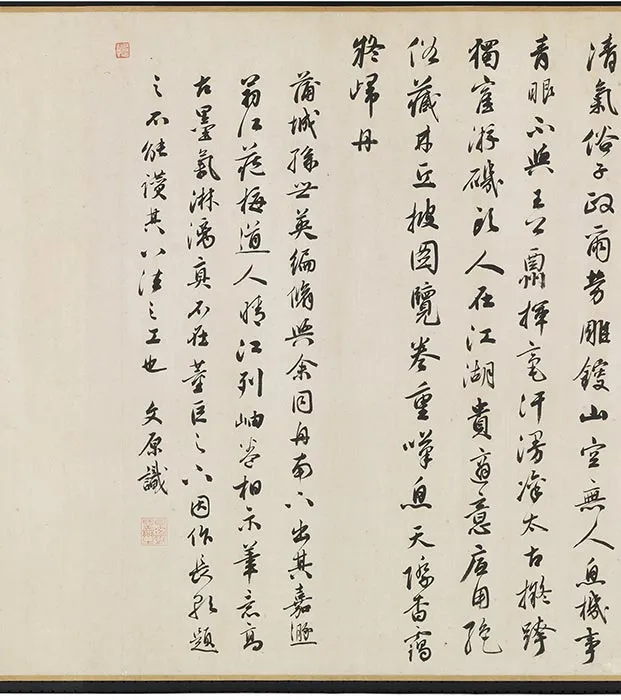 清氣俗子政爾勞雕鎪山空無人息機事
青眼不與王揮毫汗漫凌太古擬跨
獨游磯頭人在江湖貴適意底用絕
俗藏林丘披圖覽卷重嘆息天際杳靄
將歸舟
蒲城孫世英編脩與余同舟南下出其嘉遯
翁江梅道人晴江列岫卷相示筆意高
古墨氣淋漓真不在董巨之下因作長歌題
之不能讚其八法之工也 文原識